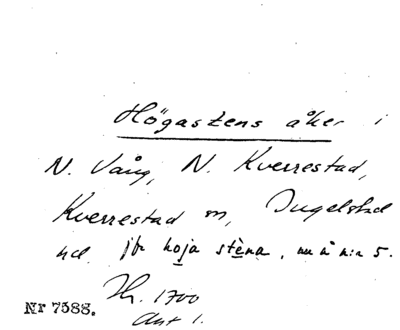 Högastens åker i
N. Vång, N. Kverrestad,
Kverrestad sn, Ingelstad
hd. jfr hoja stèna, nu å n:r 5.
Jb. 1700
Ant 1.
Nr 7588.